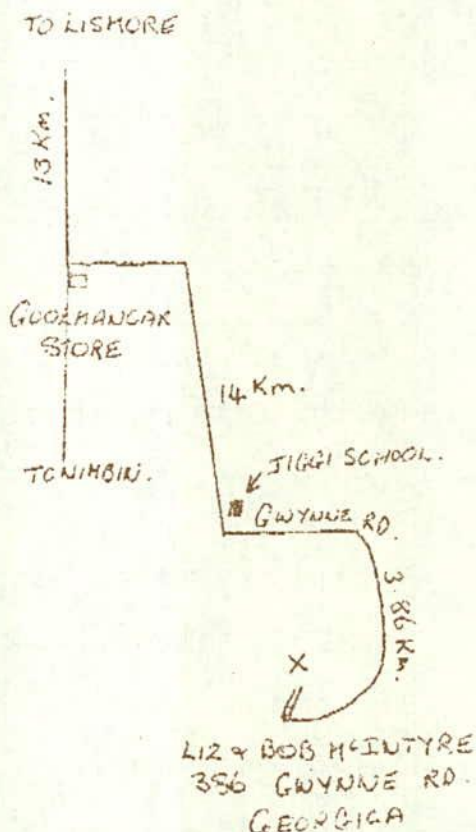 TO LISMORE
13 Km.
GOOLMANGAR
STORE
TO NIMBIN.
14 Km.
JIGGI SCHOOL.
GWYNNE RD.
3.86 Km.
X
LIZ & BOB McINTYRE
386 GWYNNE RD.
GEORGICA